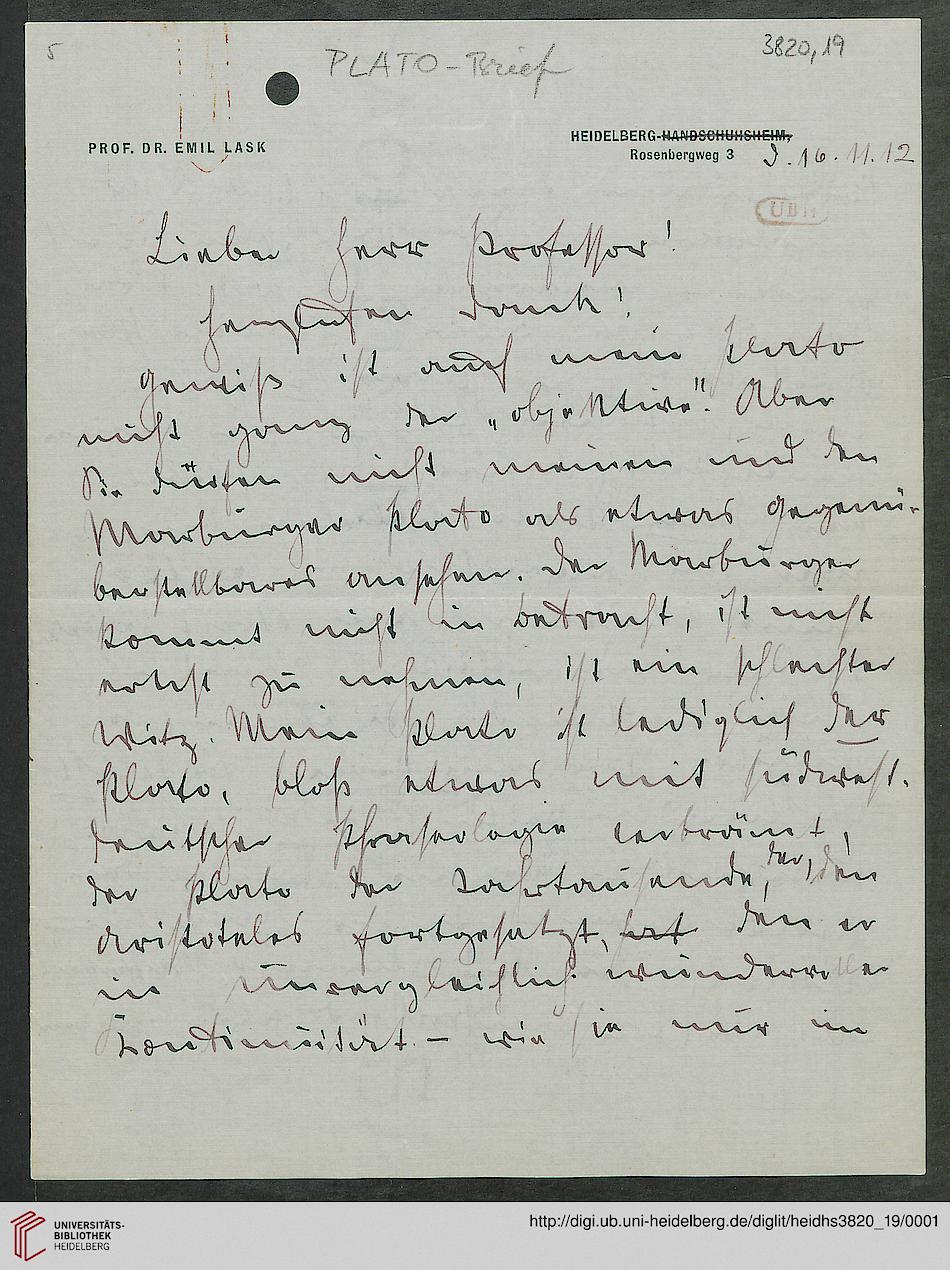 5
PLATO-Brief
3820,19
PROF. DR. EMIL LASK
HEIDELBERG-HANDSCHUHSHEIM,
Rosenbergweg 3
d. 16. 11. 12
UBH
Lieber Herr Professor!
Herzlichen Dank!
Gewiß ist auch mein Plato
nicht ganz der „objektive". Aber
Sie dürfen nicht meinen und den
Marburger Plato als etwas Gegenü-
berstellbares ansehen. Der Marburger
kommt nicht in Betracht, ist nicht
ernst zu nehmen, ist ein schlechter
Witz. Mein Plato ist lediglich der
Plato, bloß etwas mit südwest-
deutscher Phraseologie verbrämt,
der Plato der Jahrtausende, der, den
Aristoteles fortgesetzt, hat den er
in unvergleichlich wundervoller
Kontinuität – wie sie nur im
UNIVERSITÄTS-
BIBLIOTHEK
HEIDELBERG
http://digi.ub.uni-heidelberg.de/diglit/heidhs3820_19/0001